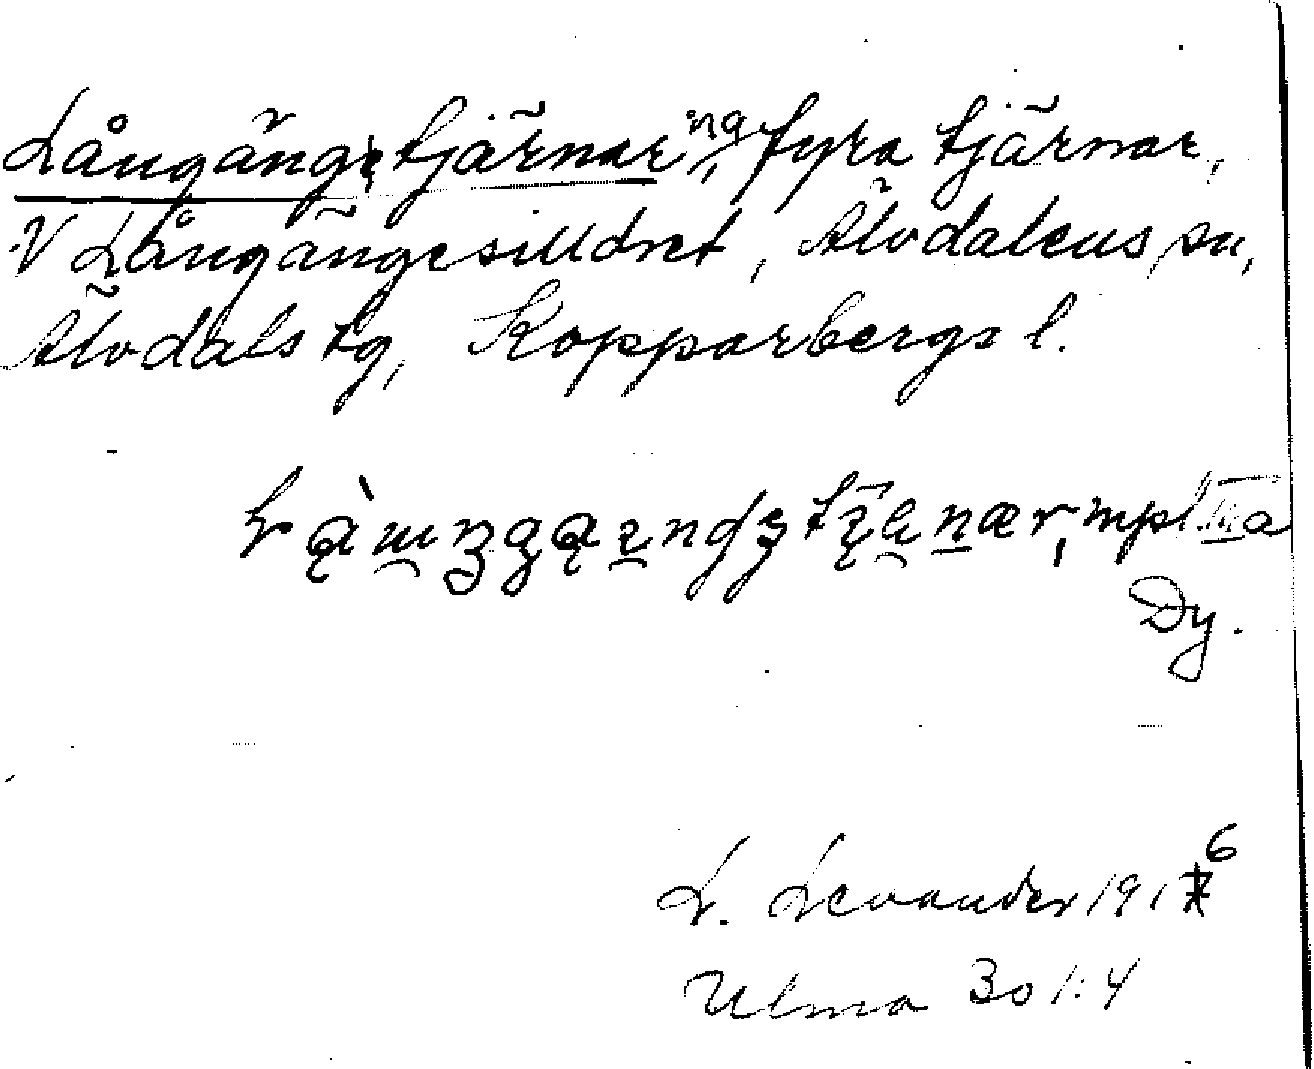 Långängstjärnar, ng fyra tjärnar,
V Långängesilldret, Älvdalens sn,
Älvdals tg, Kopparbergs l.
mpl. III a
Dy.
L. Levander 1916
Ulma 301:4